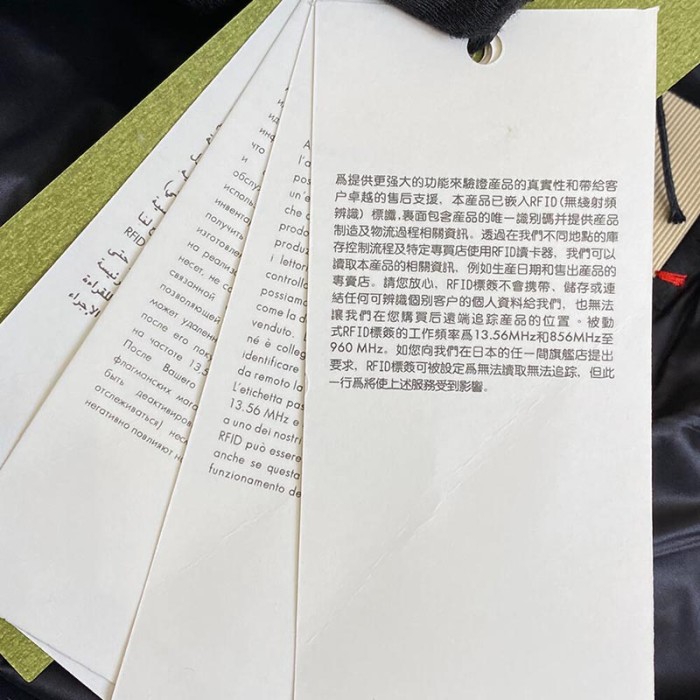 爲提供更强大的功能來驗證産品的真實性和帶給客
户卓越的售后支援，本産品已嵌入RFID(無綫射頻
辨識）標讖,裏面包含産品的唯一識别碼并提供産品
制造及物流過程相關資訊。透過在我們不同地點的庫
存控制流程及特定專買店使用RFID讀卡器，我們可以
讀取本産品的相關資訊，例如生産日期和售出産品的
專賣店。請您放心，RFID標簽不會携帶、儲存或連
結任何可辨識個别客户的個人資料給我們，也無法
讓我們在您購買后遠端追踪産品的位置。被動
式RFID標簽的工作頻率爲13.56MHz和856MHz至
960 MHz。如您向我們在日本的任一間旗艦店提出
要求，RFID標簽可被設定爲無法讀取無法追踪，但此
一行爲將使上述服務受到影響。
A
l'a
pos
un'e
che c
prodo
produ
i lettor
controllo
possiamo
come la d
venduto. L
né è colleg
identificare
da remoto la
L'etichetta pas
13.56 MHz e
a uno dei nostri
RFID può essere
anche se questa
funzionamento de
ид
инф
что
и
обслу
исполь
инвента
получить
изготовле
на реализ
несет, не со
связанной
позволяющей
может удален
после его пок
на частоте 13,5
После Вашего
флагманских мага
быть деактивиров
отслеживаться) неск
негативно повлияют н
RFID